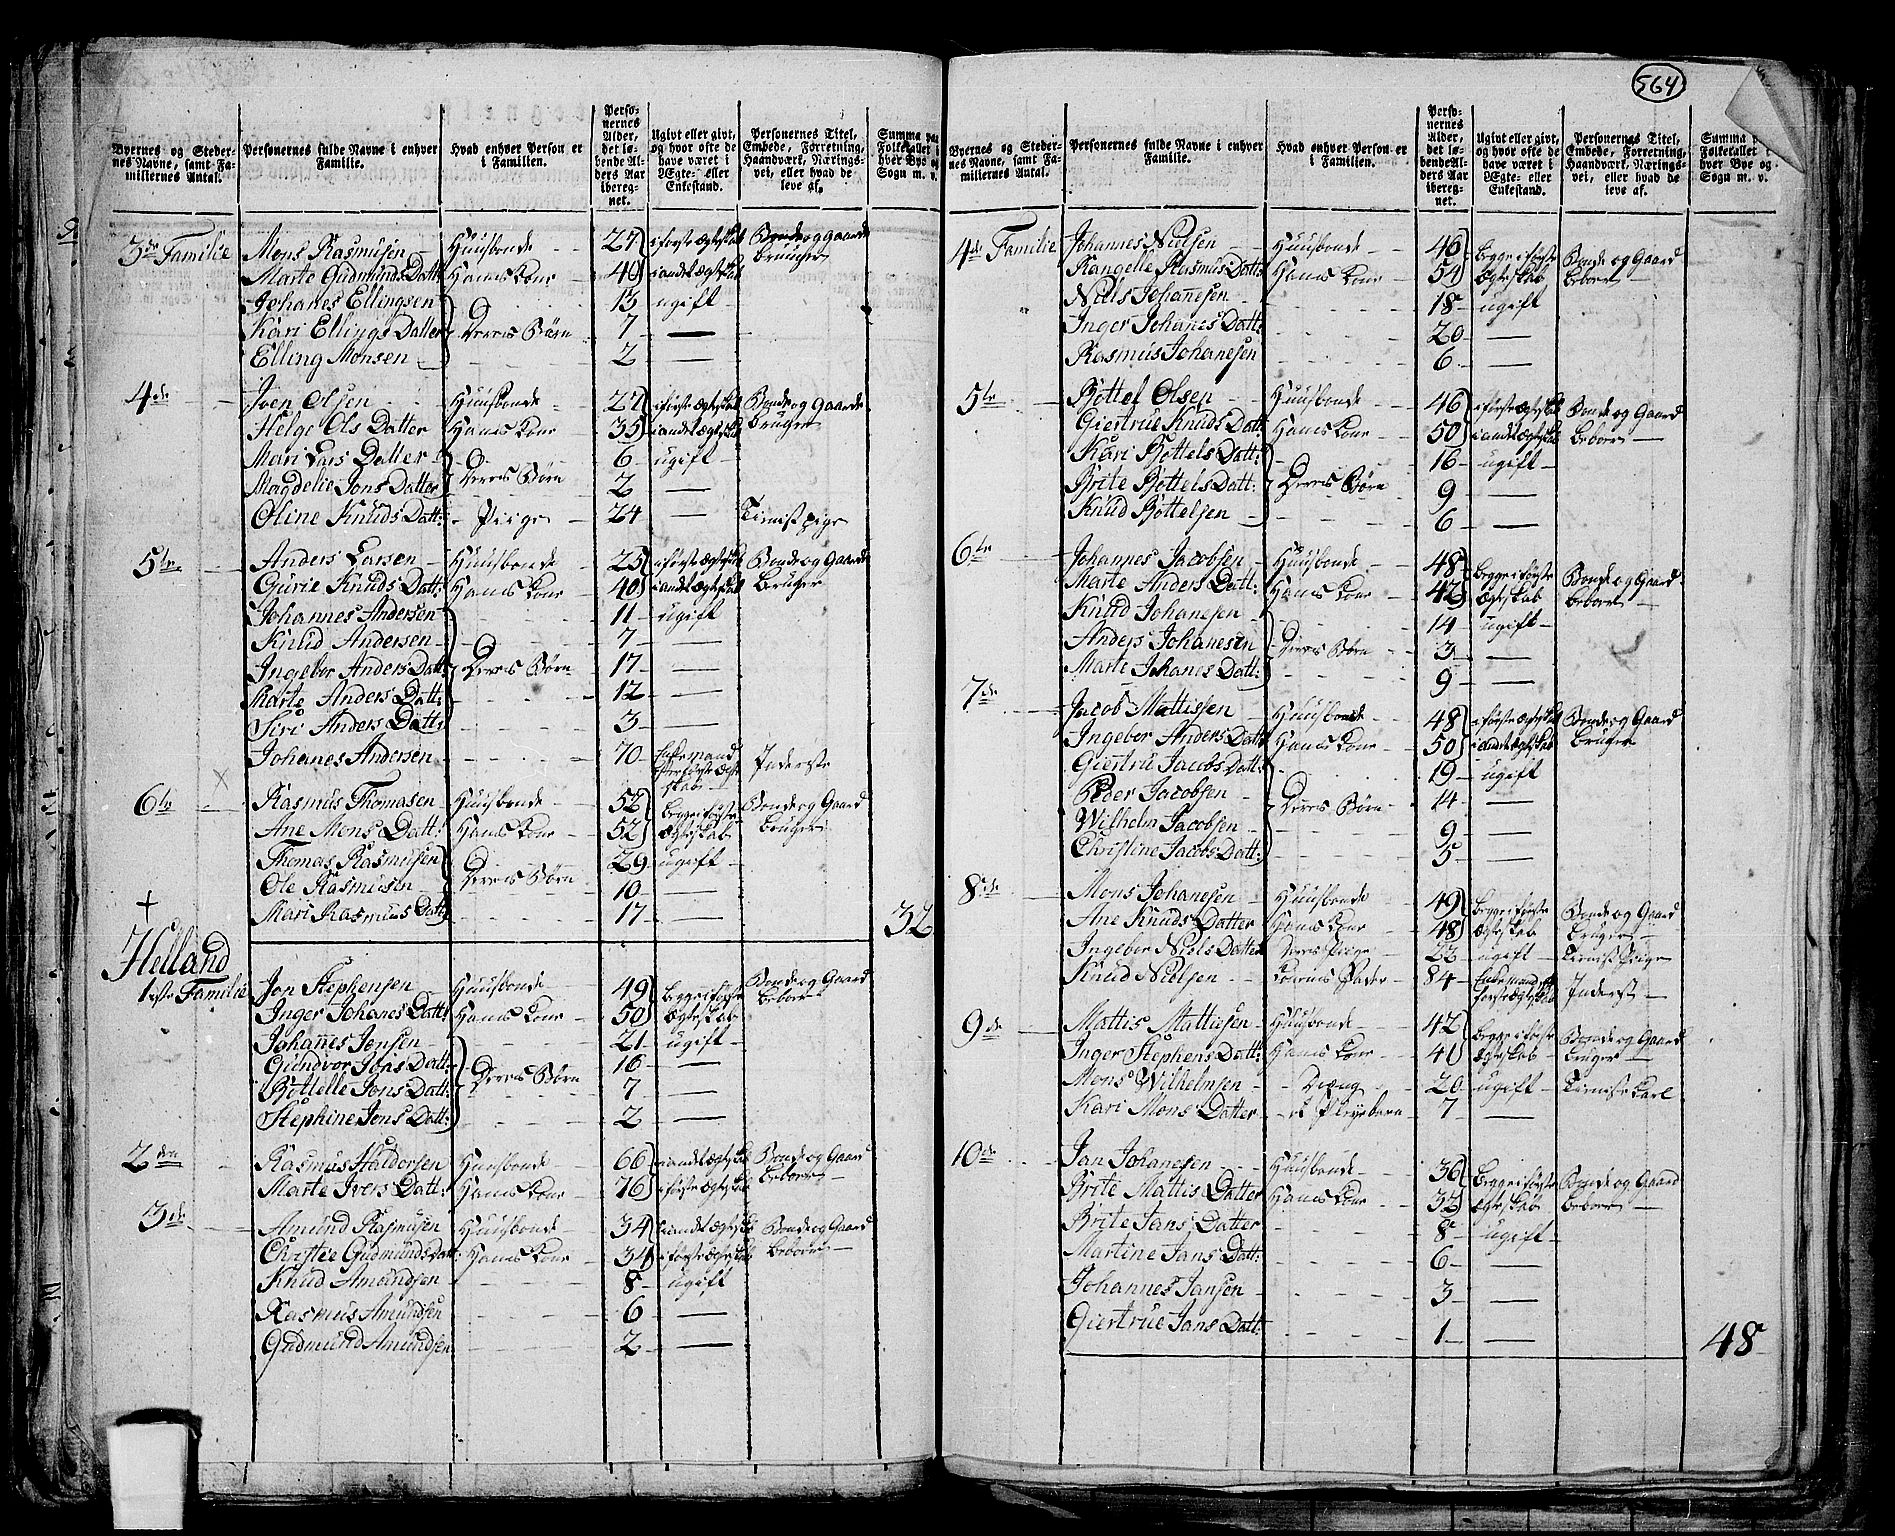 564
Byernes og Steder-
nes Navne, samt Fa-
miliernes Antal.
Personernes fulde Navne i enhver
Familie.
Hvad enhver Person er
i Familien.
Perso-
nernes
Alder,
det lø-
bende Al-
ders Aar
ibereg-
net.
Ugivt eller givt,
og hvor ofte de
have været i
Ægte- eller
Enkestand.
Personernes Titel,
Embede, Forretning,
Haandværk, Nærings-
vei, eller hvad de
leve af.
Summa paa
Folketallet i
hver Bye og
Sogn m. v.
3de Familie Mons Rasmusen Huusbonde 27 i første ægteskab Bonde og Gaard
Marte Gudmunds Datt: Hans Kone 40 i andet ægteskab bruuger
Johanes Ellingsen 13 ugift
Kari Ellings Datter Deres Børn 7 —
Elling Monsen 2 —
4de Iven Olsen Huusbonde 27 i første ægteskab Bonde og Gaard
Helge Ols Datter Hans Kone 35 i andet ægteskab bruger
Mari Lars Datter 6 ugift
Magdelie Jons Datter Deres Børn 2 —
Oline Knuds Datt: Piige 24 — Tieniste pige
5te Anders Larsen Huusbonde 25 i første ægteskab Bonde og Gaard
Gurie Knuds Datt: Hans Kone 40 i andet ægteskab bruger
Johannes Andersen 11 ugift
Knud Andersen 7 —
Ingebor Anders Datt: Deres Børn 17 —
Marte Anders Datt: 12 —
Siri Anders Datt: 3 —
Johanes Andersen 70 Enkemand Inderste
efter første ægte
skab
6te Rasmus Thomasen Huusbonde 52 begge i første Bonde og Gaard
Ane Mons Datt: Hans Kone 52 ægteskab bruger
Thomas Rasmusen 29 ugift
Ole Rasmusen Deres Børn 10 —
Mari Rasmus Datt: 17 — 32
Helland
1ste Familie Jon Stephensen Huusbonde 49 begge i første Bonde og Gaard
Inger Johanes Datt: Hans Kone 50 ægteskab beboer
Johannes Jonsen 21 ugift
Gundvor Jons Datt: 16 —
Bottelle Jons Datt: Deres Børn 7 —
Stephine Jons Datt: 2 —
2den Rasmus Haldorsen Huusbonde 66 i andet ægteskab Bonde og Gaard
Marte Ivers Datt: Hans Kone 76 i første ægteskab beboer
3de Amund Rasmusen Huusbonde 34 i andet ægteskab Bonde og Gaard
Christie Gudmunds Datt: Hans Kone 34 i første ægteskab beboer
Knud Amundsen 8 ugift
Rasmus Amundsen 6 —
Gudmund Amundsen 2 —
Byernes og Steder-
nes Navne, samt Fa-
miliernes Antal.
Personernes fulde Navne i enhver
Familie.
Hvad enhver Person er
i Familien.
Perso-
nernes
Alder,
det lø-
bende Al-
ders Aar
ibereg-
net.
Ugivt eller givt,
og hvor ofte de
have været i
Ægte- eller
Enkestand.
Personernes Titel,
Embede, Forretning,
Haandværk, Nærings-
vei, eller hvad de
leve af.
Summa
Folketallet i
hver Bye og
Sogn m. v.
4de Familie Johannes Nielsen Huusbonde 46 begge i første Bonde og Gaard
Rangelle Rasmus Datt: Hans Kone 54 ægteskab beboer
Niels Johanesen 18 ugift
Inger Johanes Datt: 20 —
Rasmus Johanesen 6 —
5te Bottel Olsen Huusbonde 46 i første ægteskab Bonde og Gaard
Giertrue Knuds Datt: Hans Kone 50 i andet ægteskab beboer
Kari Bottels Datt: 16 ugift
Brite Bottels Datt: Deres Børn 9 —
Knud Bottelsen 6 —
6te Johannes Jacobsen Huusbonde 48 begge i første Bonde og Gaard
Marte Anders Datt: Hans Kone 42 ægteskab beboer
Knud Johanesen 14 ugift
Anders Johanesen Deres Børn 3 —
Marte Johanes Datt: 9 —
7de Jacob Mattissen Huusbonde 48 i første ægteskab Bonde og Gaard
Ingebor Anders Datt: Hans Kone 50 i andet ægteskab bruger
Giertru Jacobs Datt: 19 ugift
Peder Jacobsen Deres Børn 14 —
Wilhelm Jacobsen 9 —
Christine Jacobs Datt: 5 —
8de Mons Johanesen Huusbonde 49 begge i første Bonde og Gaard
Ane Knuds Datter Hans Kone 48 ægteskab bruger
Ingebor Niels Datter Deres Piige 22 ugift Tieniste Piige
Knud Nielsen Konens Fader 84 Enkemand eft: Inderst
første ægteskab
9de Mattis Mattiesen Huusbonde 42 begge i første Bonde og Gaard
Inger Stephens Datt: Hans Kone 41 ægteskab bruger
Mons Wilhelmsen Dreng 20 ugift Tieniste Karl
Kari Mons Datter et Pleyebarn 7 —
10de Jan Johanesen Huusbonde 36 begge i første Bonde og Gaard
Brite Mattis Datter Hans Kone 32 ægteskab beboer
Brite Jans Datter 8 ugift
Martine Jans Datt: 6 —
Johannes Jansen 3 —
Giertrue Jans Datt: 1 — 48